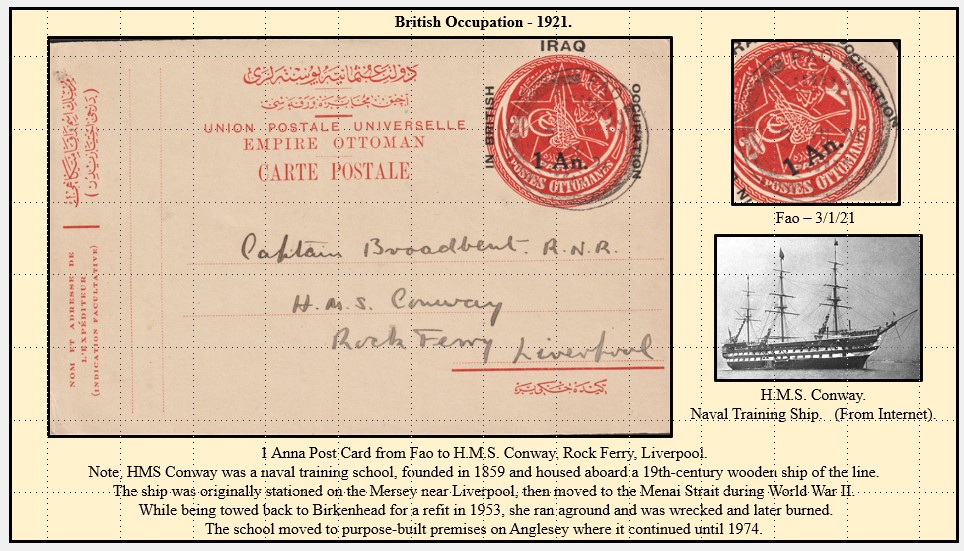 British Occupation - 1921.
IRAQ
IN BRITISH
OCCUPATION
دولت عثمانیه پوسته لری
آچیق مخابره ورقه سی
UNION POSTALE UNIVERSELLE
EMPIRE OTTOMAN
CARTE POSTALE
20
1 An.
POSTES OTTOMANES
NOM ET ADRESSE DE
L'EXPÉDITEUR
(INDICATION FACULTATIVE)
Captain Broadbent. R.N.R.
H.M.S. Conway
Rock Ferry Liverpool
OCCUPATION
20
1 An.
POSTES OTTOMANES
Fao – 3/1/21
H.M.S. Conway.
Naval Training Ship. (From Internet).
1 Anna Post Card from Fao to H.M.S. Conway, Rock Ferry, Liverpool.
Note, HMS Conway was a naval training school, founded in 1859 and housed aboard a 19th-century wooden ship of the line.
The ship was originally stationed on the Mersey near Liverpool, then moved to the Menai Strait during World War II.
While being towed back to Birkenhead for a refit in 1953, she ran aground and was wrecked and later burned.
The school moved to purpose-built premises on Anglesey where it continued until 1974.